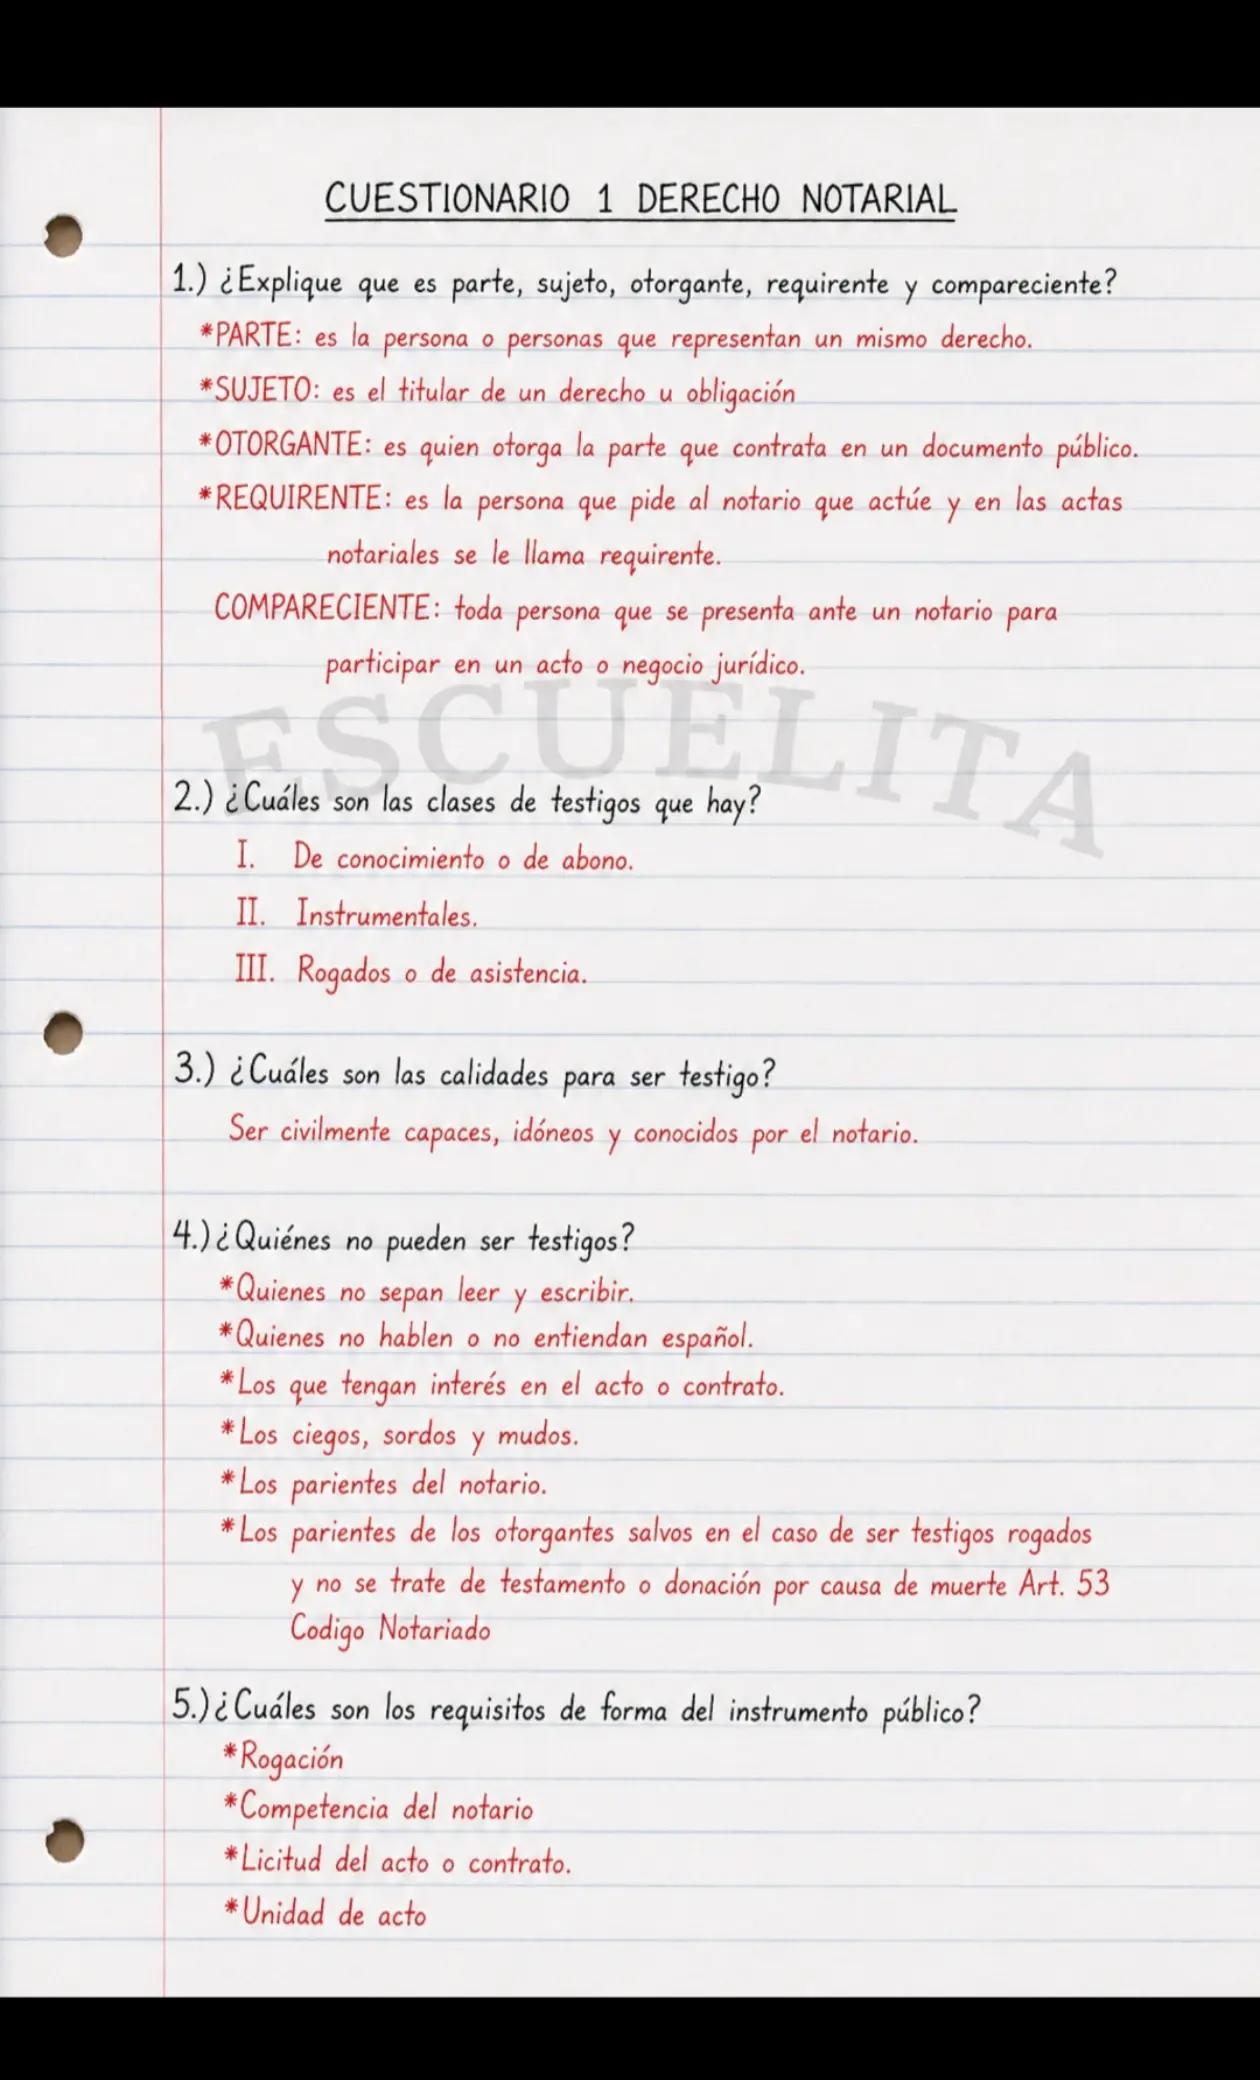 CUESTIONARIO 1 DERECHO NOTARIAL
1.) ¿Explique que es parte, sujeto, otorgante, requirente y compareciente?
*PARTE: es la persona o personas que representan un mismo derecho.
*SUJETO: es el titular de un derecho u obligación
*OTORGANTE: es quien otorga la parte que contrata en un documento público.
*REQUIRENTE: es la persona que pide al notario que actúe y en las actas
notariales se le llama requirente.
COMPARECIENTE: toda persona que se presenta ante un notario para
participar en un acto o negocio jurídico.
ESCUELITA
2.) ¿Cuáles son las clases de testigos que hay?
I. De conocimiento o de abono.
II. Instrumentales.
III. Rogados o de asistencia.
3.) ¿Cuáles son las calidades para ser testigo?
Ser civilmente capaces, idóneos y conocidos por el notario.
4.) ¿Quiénes no pueden ser testigos?
*Quienes no sepan leer y escribir.
*Quienes no hablen o no entiendan español.
*Los que tengan interés en el acto o contrato.
*Los ciegos, sordos y mudos.
*Los parientes del notario.
*Los parientes de los otorgantes salvos en el caso de ser testigos rogados
y no se trate de testamento o donación por causa de muerte Art. 53
Codigo Notariado
5.) ¿Cuáles son los requisitos de forma del instrumento público?
*Rogación
*Competencia del notario
*Licitud del acto o contrato.
*Unidad de acto